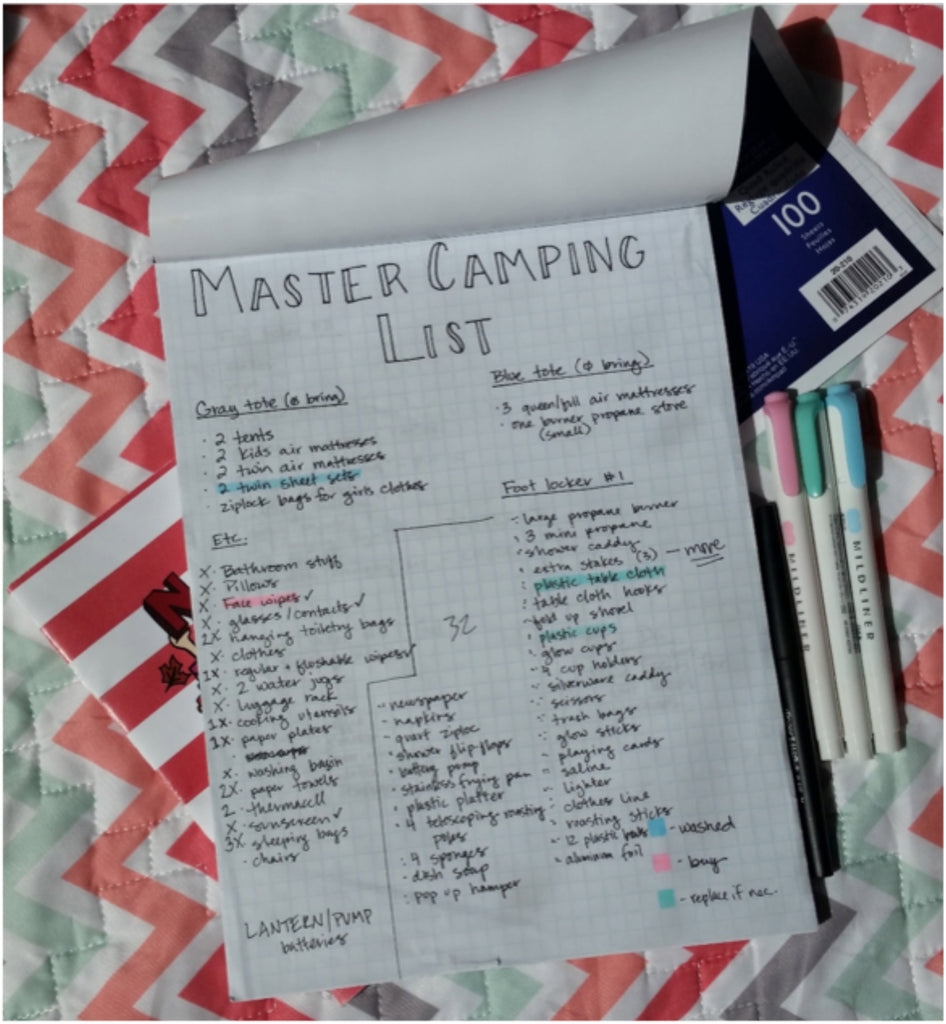 MASTER CAMPING
LIST
Gray tote (Ø bring)
· 2 tents
· 2 kids air mattresses
· 2 twin air mattresses
· 2 twin sheet sets
· ziplock bags for girls clothes
Blue tote (Ø bring)
· 3 queen/full air mattresses
· one burner propane stove
(small)
Etc.
X · Bathroom stuff
X · Pillows
X · Face wipes ✓
X · glasses/contacts ✓
2X · hanging toiletry bags
X · clothes
1X · regular + flushable wipes ✓
X · 2 water jugs
X · luggage rack
1X · cooking utensils
1X · paper plates
X · washing basin
2X · paper towels
2 · thermacell
X · sunscreen ✓
3X · sleeping bags
· chairs
LANTERN/PUMP
batteries
Foot locker #1
· large propane burner
· 3 mini propane
· shower caddy
· extra stakes (3) — more
· plastic table cloth
· table cloth hooks
· fold up shovel
· plastic cups
· glow cups
· 4 cup holders
· silverware caddy
· scissors
· trash bags
· glow sticks
· playing cards
· saline
· lighter
· clothes line
· roasting sticks
· 12 plastic
· aluminum foil
32
· newspaper
· napkins
· quart ziploc
· shower flip-flops
· battery pump
· stainless frying pan
· plastic platter
· 4 telescoping roasting
poles
· 4 sponges
· dish soap
· pop up hamper
- washed
- buy
- replace if nec.
100
Sheets
Feuilles
Hojas
20-210
MILDLINER
MILDLINER